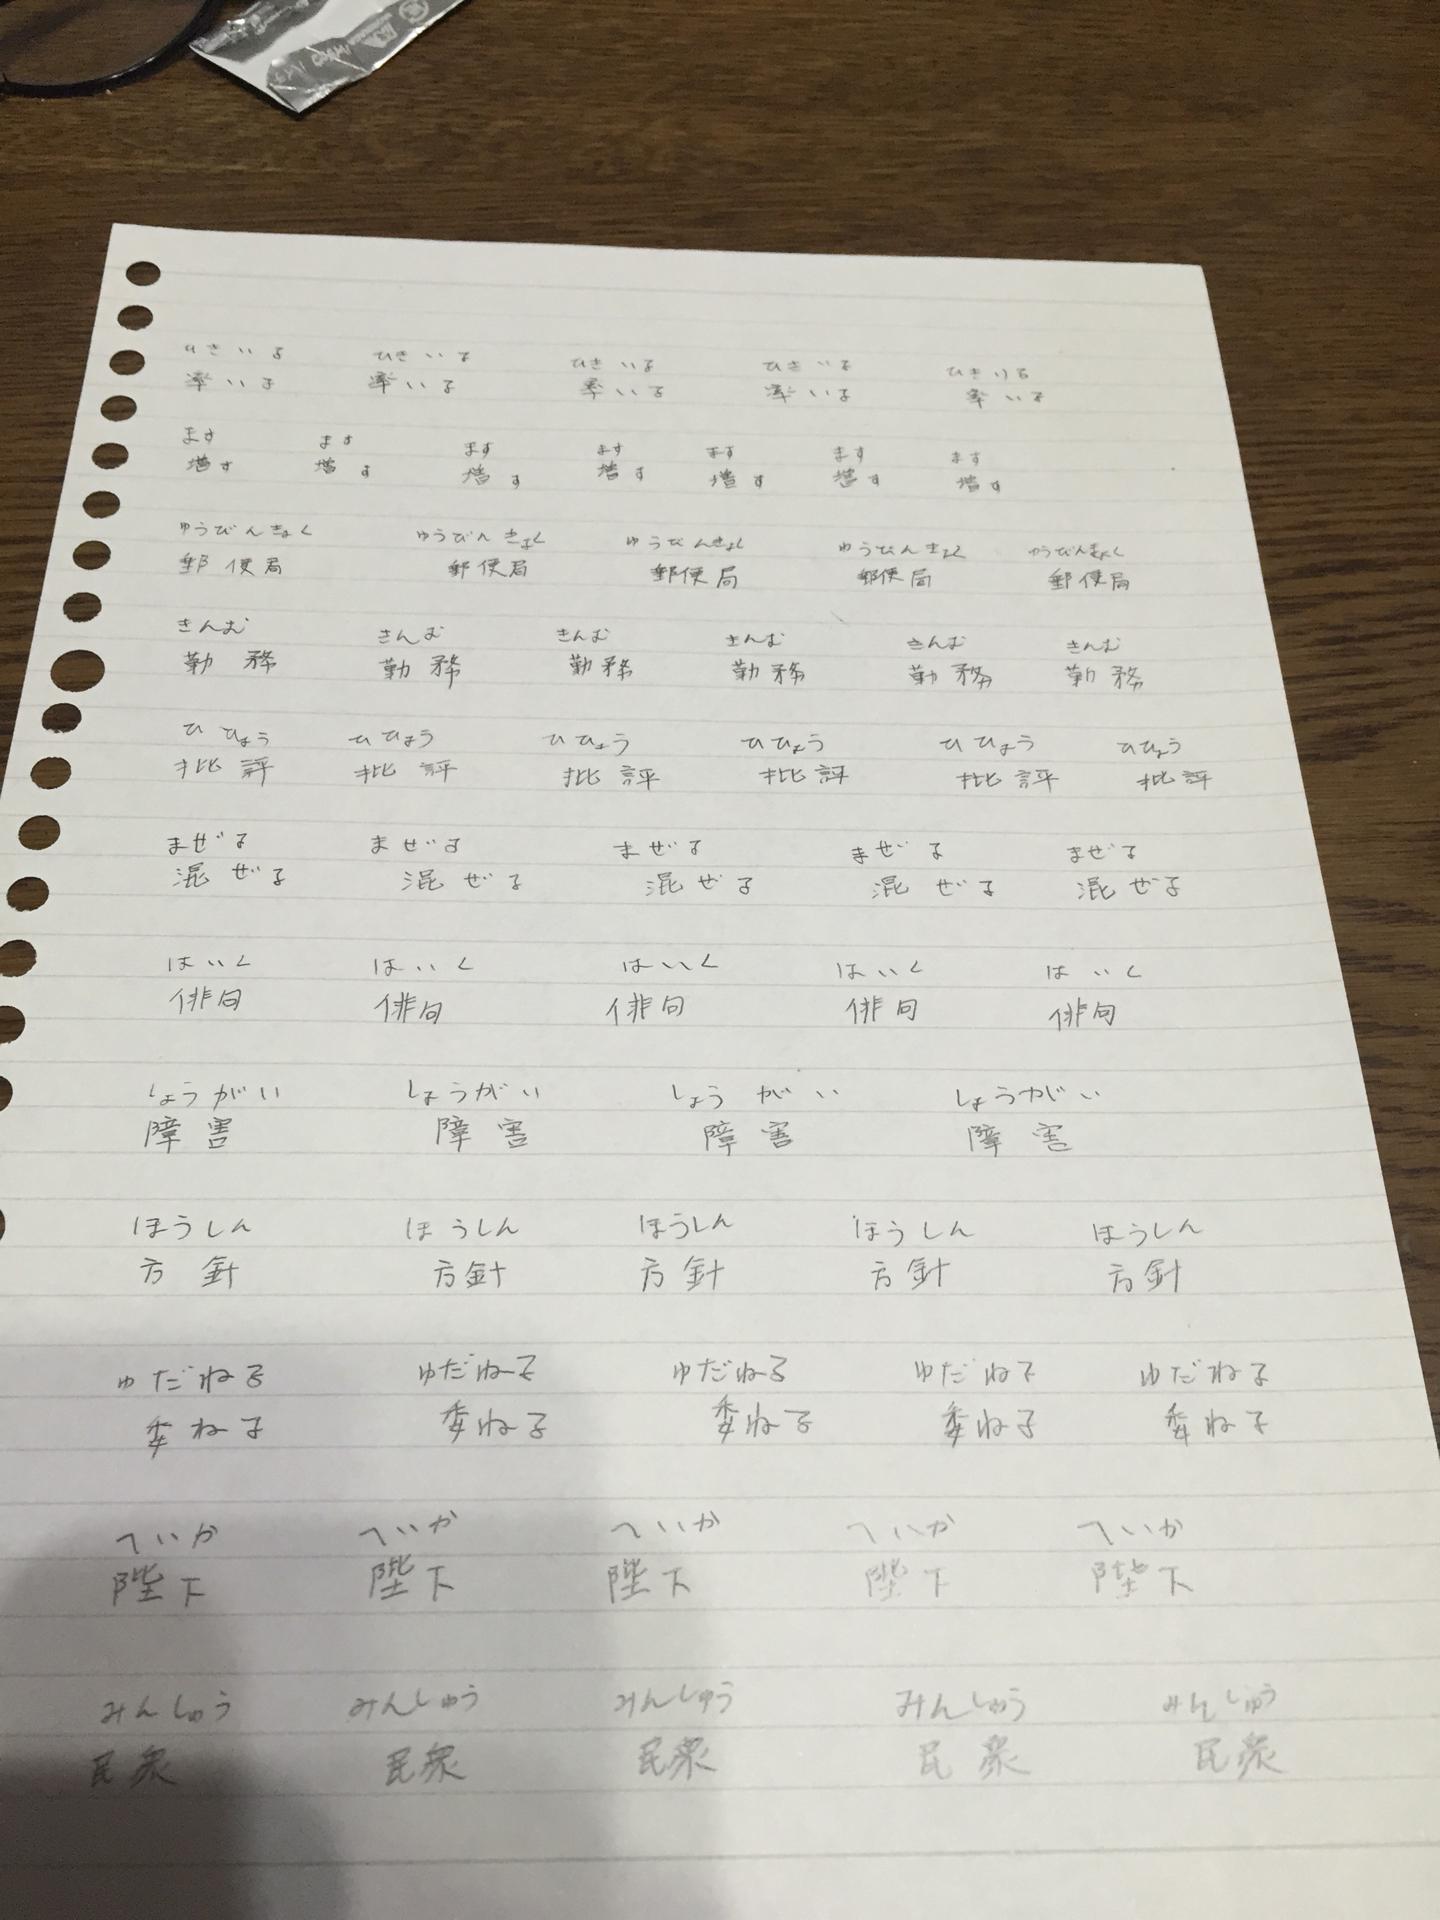 ひきいる ひきいる ひきいる ひきいる ひきいる
率いる 率いる 率いる 率いる 率いる
ます ます ます ます ます ます ます
増す 増す 増す 増す 増す 増す 増す
ゆうびんきょく ゆうびんきょく ゆうびんきょく ゆうびんきょく ゆうびんきょく
郵便局 郵便局 郵便局 郵便局 郵便局
きんむ きんむ きんむ きんむ きんむ きんむ
勤務 勤務 勤務 勤務 勤務 勤務
ひひょう ひひょう ひひょう ひひょう ひひょう ひひょう
批評 批評 批評 批評 批評 批評
まぜる まぜる まぜる まぜる まぜる
混ぜる 混ぜる 混ぜる 混ぜる 混ぜる
はいく はいく はいく はいく はいく
俳句 俳句 俳句 俳句 俳句
しょうがい しょうがい しょうがい しょうがい
障害 障害 障害 障害
ほうしん ほうしん ほうしん ほうしん ほうしん
方針 方針 方針 方針 方針
ゆだねる ゆだねる ゆだねる ゆだねる ゆだねる
委ねる 委ねる 委ねる 委ねる 委ねる
へいか へいか へいか へいか へいか
陛下 陛下 陛下 陛下 陛下
みんしゅう みんしゅう みんしゅう みんしゅう みんしゅう
民衆 民衆 民衆 民衆 民衆